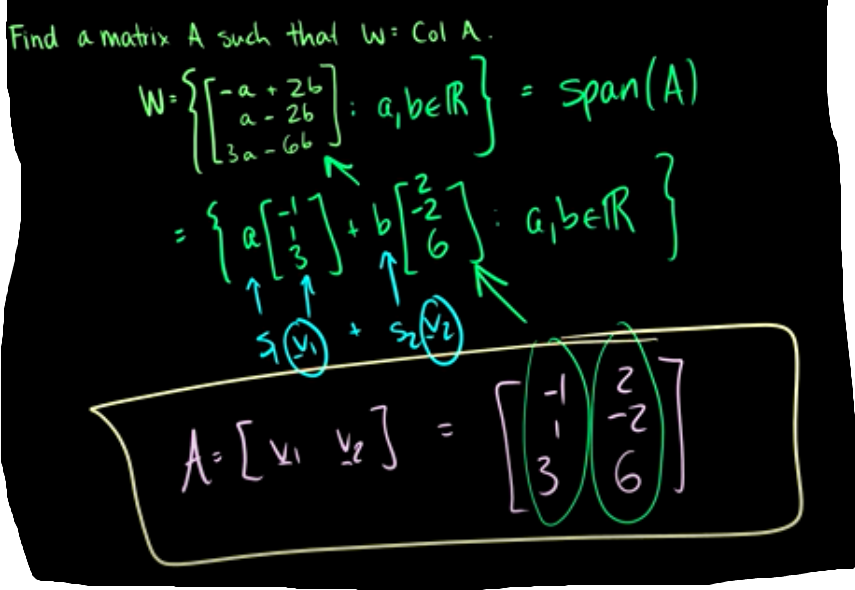 Find a matrix A such that W = Col A.
W = { [ -a + 2b ; a - 2b ; 3a - 6b ] : a, b ∈ ℝ } = span(A)
= { a [ -1 ; 1 ; 3 ] + b [ 2 ; -2 ; 6 ] : a, b ∈ ℝ }
s₁ v₁ + s₂ v₂
A = [ v₁ v₂ ] = [ -1 2 ; 1 -2 ; 3 6 ]